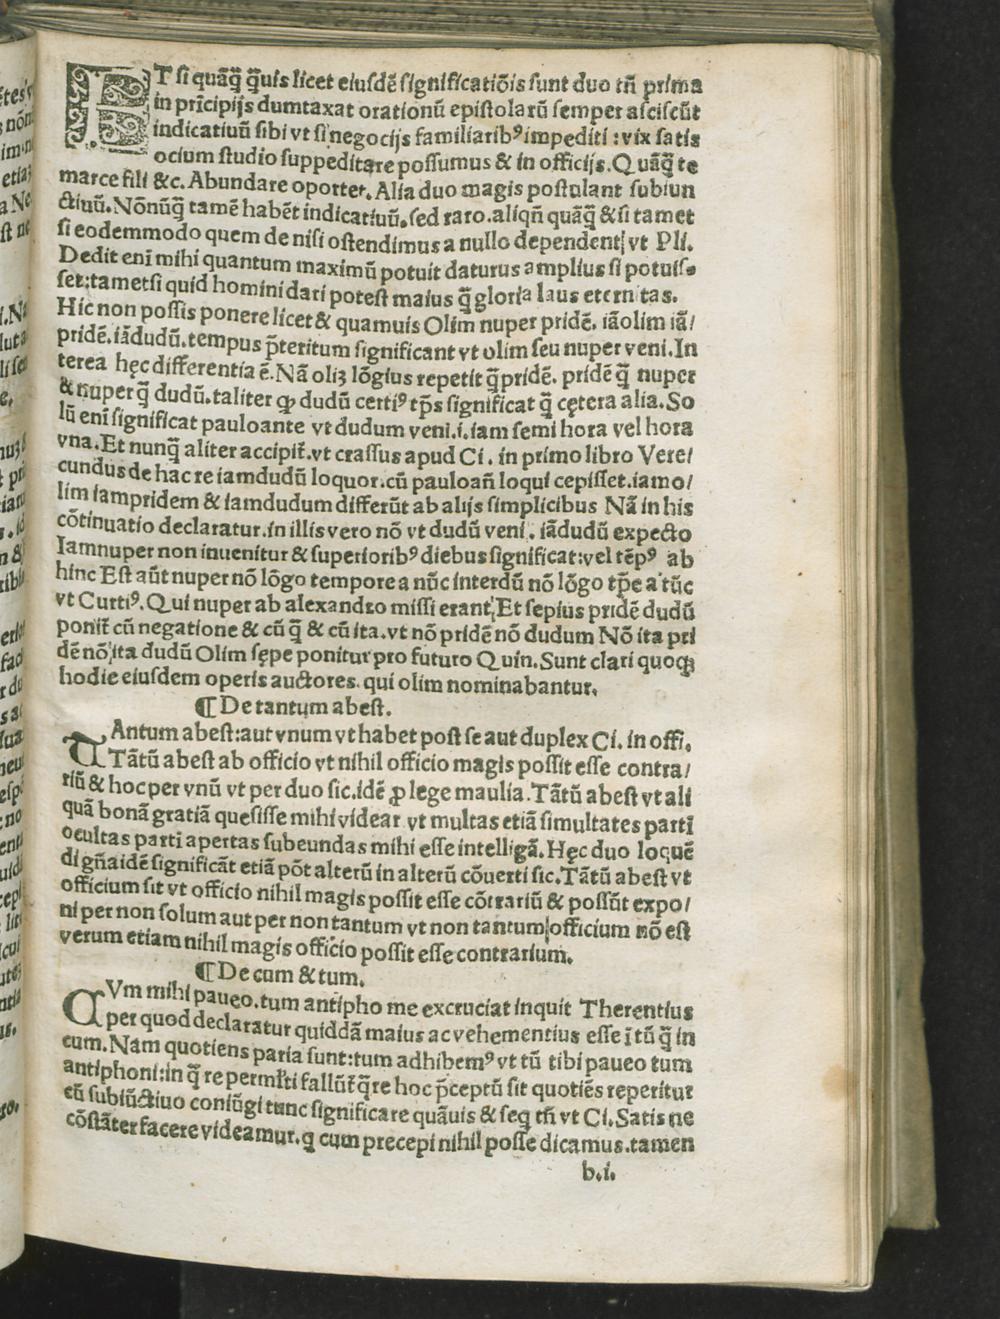 ET si quāq̃ q̃uis licet eiusdē significatiōis sunt duo tñ prima
in prīcipijs dumtaxat orationū epistolarū semper asciscūt
indicatiuū sibi vt si negocijs familiaribꝰ impediti : vix satis
ocium studio suppeditare possumus & in officijs. Quāq̃ te
marce fili &c. Abundare oportet. Alia duo magis postulant subiun
ctiuū. Nōnūq̃ tamē habēt indicatiuū. sed raro. aliqñ quāq̃ & si tamet
si eodemmodo quem de nisi ostendimus a nullo dependent vt Pli.
Dedit enī mihi quantum maximū potuit daturus amplius si potuis-
set: tametsi quid homini dari potest maius q̃ gloria laus eternitas.
Hic non possis ponere licet & quamuis Olim nuper pridē. iāolim iā/
pridē. iādudū. tempus p̄teritum significant vt olim seu nuper veni. In
terea hęc differentia ē. Nā oliꝫ lōgius repetit q̃ pridē. pridē q̃ nuper
& nuper q̃ dudū. taliter ꝙ dudū certiꝰ tp̄s significat q̃ cętera alia. So
lū enī significat pauloante vt dudum veni. i. iam semi hora vel hora
vna. Et nunq̃ aliter accipit̄. vt crassus apud Ci. in primo libro Vere/
cundus de hac re iamdudū loquor. cū pauloañ loqui cepisset. iamo/
lim iampridem & iamdudum differūt ab alijs simplicibus Nā in his
cōtinuatio declaratur. in illis vero nō vt dudū veni. iādudū expecto
Iamnuper non inuenitur & superioribꝰ diebus significat: vel tēpꝰ ab
hinc Est aūt nuper nō lōgo tempore a nūc interdū nō lōgo tp̄e a tūc
vt Curtiꝰ. Qui nuper ab alexandro missi erant. Et sepius pridē dudū
ponit̄ cū negatione & cū q̃ & cū ita. vt nō pridē nō dudum Nō ita pri
dē nō ita dudū Olim sępe ponitur pro futuro Quin. Sunt clari quoqꝫ
hodie eiusdem operis auctores. qui olim nominabantur.
¶ De tantum abest.
TAntum abest: aut vnum vt habet post se aut duplex Ci. in offi.
Tātū abest ab officio vt nihil officio magis possit esse contra/
riū & hoc per vnū vt per duo sic. idē ꝓ lege maulia. Tātū abest vt ali
quā bonā gratiā quesisse mihi videar vt multas etiā simultates partī
ocultas parti apertas subeundas mihi esse intelligā. Hęc duo loquē
di gña idē significāt etiā pōt alterū in alterū cōuerti sic. Tātū abest vt
officium sit vt officio nihil magis possit esse cōtrariū & possūt expo/
ni per non solum aut per non tantum vt non tantum officium nō est
verum etiam nihil magis officio possit esse contrarium.
¶ De cum & tum.
CVm mihi paueo. tum antipho me excruciat inquit Therentius
per quod declaratur quiddā maius ac vehementius esse ī tū q̃ in
cum. Nam quotiens paria sunt: tum adhibemꝰ vt tū tibi paueo tum
antiphoni: in q̃ re permlti fallūt̄ q̃re hoc p̄ceptū sit quotiēs reperitur
cū subiūctiuo coniūgi tunc significare quāuis & seq̄ tñ vt Ci. Satis ne
cōstāter facere videamur. q cum precepi nihil posse dicamus. tamen
b.i.